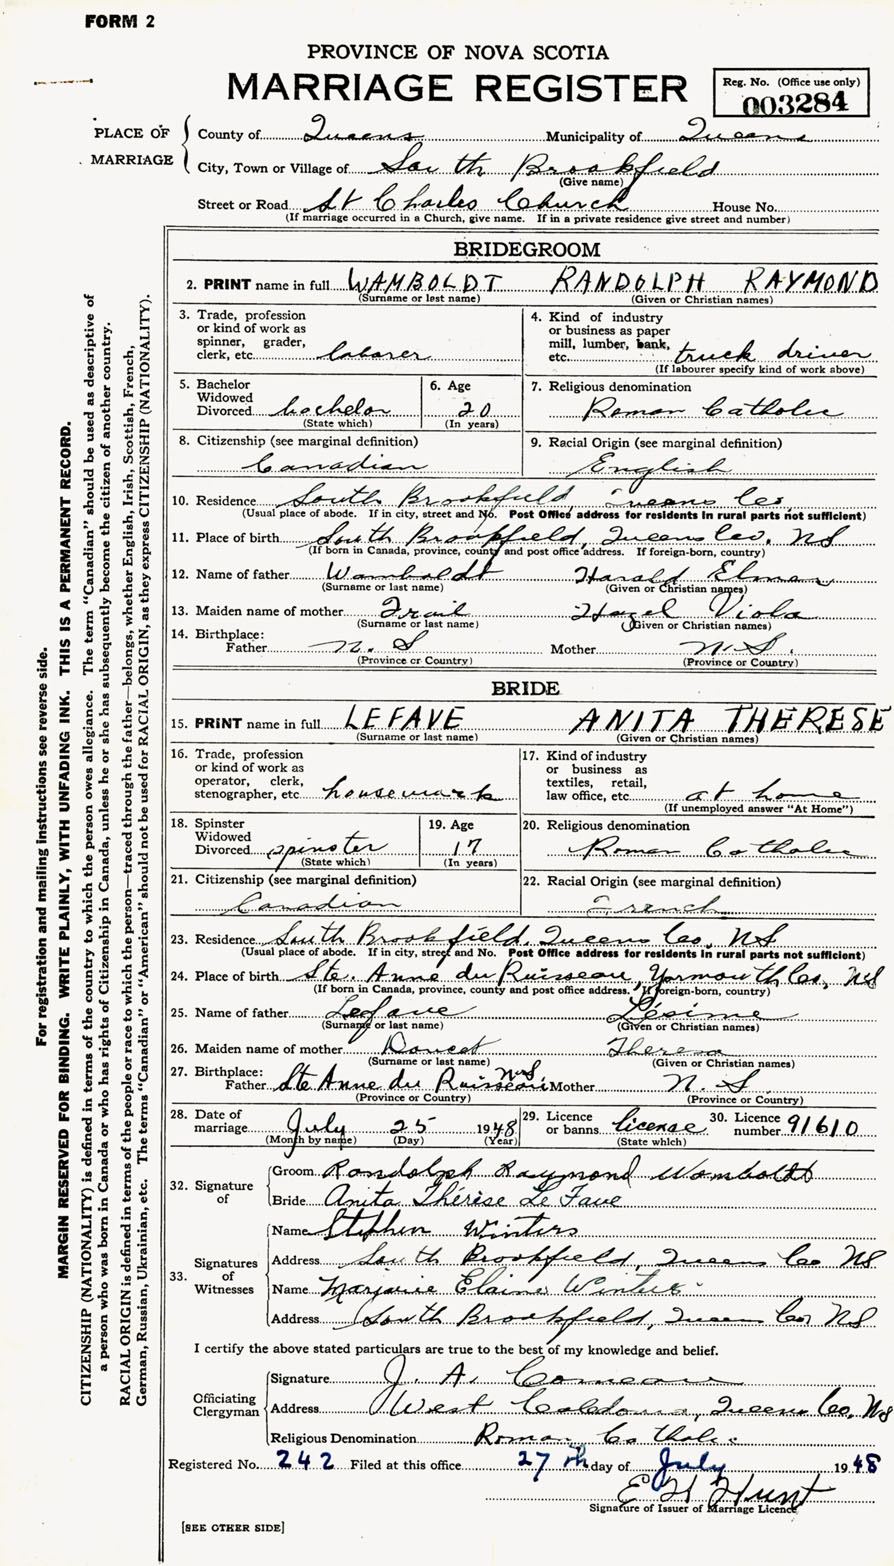 FORM 2
PROVINCE OF NOVA SCOTIA
MARRIAGE REGISTER
Reg. No. (Office use only)
003284
PLACE OF MARRIAGE
County of Queens Municipality of Queens
City, Town or Village of South Brookfield
(Give name)
Street or Road St Charles Church House No.
(If marriage occurred in a Church, give name. If in a private residence give street and number)
BRIDEGROOM
2. PRINT name in full WAMBOLDT RANDOLPH RAYMOND
(Surname or last name) (Given or Christian names)
3. Trade, profession
or kind of work as
spinner, grader,
clerk, etc. laborer
4. Kind of industry
or business as paper
mill, lumber, bank,
etc. truck driver
(If labourer specify kind of work above)
5. Bachelor
Widowed
Divorced bachelor
(State which)
6. Age
20
(In years)
7. Religious denomination
Roman Catholic
8. Citizenship (see marginal definition)
Canadian
9. Racial Origin (see marginal definition)
English
10. Residence South Brookfield Queens Co
(Usual place of abode. If in city, street and No. Post Office address for residents in rural parts not sufficient)
11. Place of birth South Brookfield, Queens Co, NS
(If born in Canada, province, county and post office address. If foreign-born, country)
12. Name of father Wamboldt Harold Elmer
(Surname or last name) (Given or Christian names)
13. Maiden name of mother Frail Hazel Viola
(Surname or last name) (Given or Christian names)
14. Birthplace:
Father N. S Mother N. S.
(Province or Country) (Province or Country)
BRIDE
15. PRINT name in full LEFAVE ANITA THERESE
(Surname or last name) (Given or Christian names)
16. Trade, profession
or kind of work as
operator, clerk,
stenographer, etc. housework
17. Kind of industry
or business as
textiles, retail,
law office, etc. at home
(If unemployed answer "At Home")
18. Spinster
Widowed
Divorced spinster
(State which)
19. Age
17
(In years)
20. Religious denomination
Roman Catholic
21. Citizenship (see marginal definition)
Canadian
22. Racial Origin (see marginal definition)
French
23. Residence South Brookfield, Queens Co, NS
(Usual place of abode. If in city, street and No. Post Office address for residents in rural parts not sufficient)
24. Place of birth Ste. Anne du Ruisseau, Yarmouth Co, NS
(If born in Canada, province, county and post office address. If foreign-born, country)
25. Name of father Lefave Lésime
(Surname or last name) (Given or Christian names)
26. Maiden name of mother Doucet Theresa
(Surname or last name) (Given or Christian names)
27. Birthplace:
Father Ste Anne du Ruisseau NS Mother N. S.
(Province or Country) (Province or Country)
28. Date of
marriage July 25 1948
(Month by name) (Day) (Year)
29. Licence
or banns license
(State which)
30. Licence
number 91610
32. Signature
of
Groom Randolph Raymond Wamboldt
Bride Anita Thérèse Le Fave
33. Signatures
of
Witnesses
Name Stephen Winters
Address South Brookfield, Queens Co NS
Name Marjorie Elaine Winters
Address South Brookfield, Queens Co, NS
I certify the above stated particulars are true to the best of my knowledge and belief.
Officiating
Clergyman
Signature J. A. Comeau
Address West Caledonia, Queens Co, NS
Religious Denomination Roman Catholic
Registered No. 242 Filed at this office 27th day of July 1948
E H Hunt
Signature of Issuer of Marriage Licence
[SEE OTHER SIDE]
For registration and mailing instructions see reverse side.
MARGIN RESERVED FOR BINDING. WRITE PLAINLY, WITH UNFADING INK. THIS IS A PERMANENT RECORD.
CITIZENSHIP (NATIONALITY) is defined in terms of the country to which the person owes allegiance. The term "Canadian" should be used as descriptive of
a person who was born in Canada or who has rights of Citizenship in Canada, unless he or she has subsequently become the citizen of another country.
RACIAL ORIGIN is defined in terms of the people or race to which the person—traced through the father—belongs, whether English, Irish, Scottish, French,
German, Russian, Ukrainian, etc. The terms "Canadian" or "American" should not be used for RACIAL ORIGIN, as they express CITIZENSHIP (NATIONALITY).